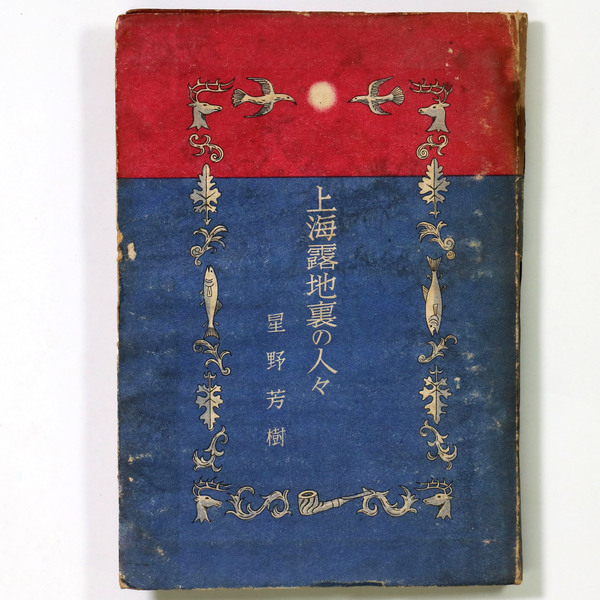 上海露地裏の人々
星野芳樹